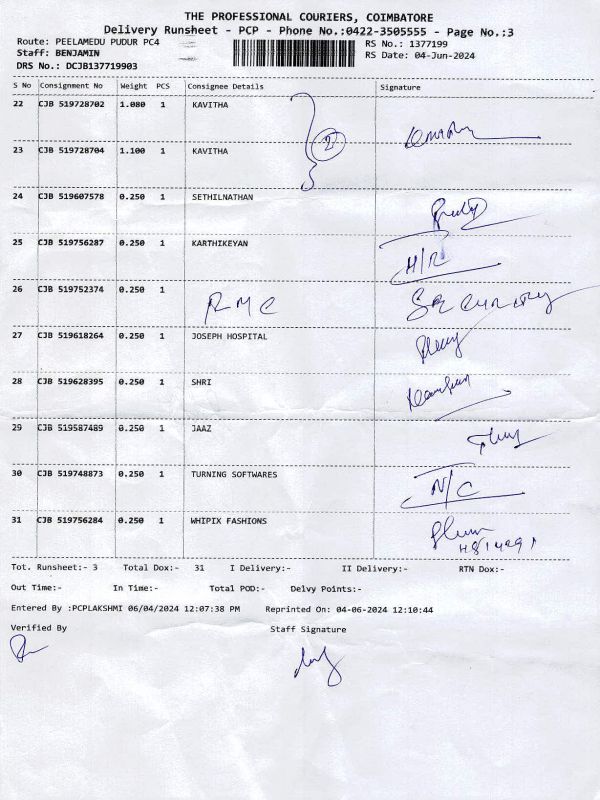 THE PROFESSIONAL COURIERS, COIMBATORE
Delivery Runsheet - PCP - Phone No.:0422-3505555 - Page No.:3
Route: PEELAMEDU PUDUR PC4
RS No.: 1377199
Staff: BENJAMIN
RS Date: 04-Jun-2024
DRS No.: DCJB137719903
S No Consignment No Weight PCS Consignee Details Signature
22 CJB 519728702 1.080 1 KAVITHA
2
23 CJB 519728704 1.100 1 KAVITHA
24 CJB 519607578 0.250 1 SETHILNATHAN
25 CJB 519756287 0.250 1 KARTHIKEYAN H/R
26 CJB 519752374 0.250 1 RMC SECURITY
27 CJB 519618264 0.250 1 JOSEPH HOSPITAL
28 CJB 519628395 0.250 1 SHRI
29 CJB 519587489 0.250 1 JAAZ
30 CJB 519748873 0.250 1 TURNING SOFTWARES N/C
31 CJB 519756284 0.250 1 WHIPIX FASHIONS
Tot. Runsheet:- 3 Total Dox:- 31 I Delivery:- II Delivery:- RTN Dox:-
Out Time:- In Time:- Total POD:- Delvy Points:-
Entered By :PCPLAKSHMI 06/04/2024 12:07:38 PM Reprinted On: 04-06-2024 12:10:44
Verified By Staff Signature